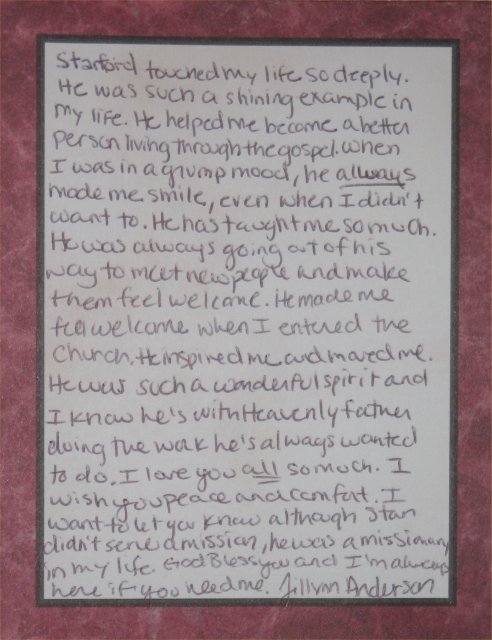 Stanford touched my life so deeply.
He was such a shining example in
my life. He helped me become a better
person living through the gospel. When
I was in a grump mood, he always
made me smile, even when I didn't
want to. He has taught me so much.
He was always going out of his
way to meet new people and make
them feel welcome. He made me
feel welcome when I entered the
Church. He inspired me and moved me.
He was such a wonderful spirit and
I know he's with Heavenly father
doing the work he's always wanted
to do. I love you all so much. I
wish you peace and comfort. I
want to let you know although Stan
didn't serve a mission, he was a missionary
in my life. God Bless you and I'm always
here if you need me. Jillynn Anderson